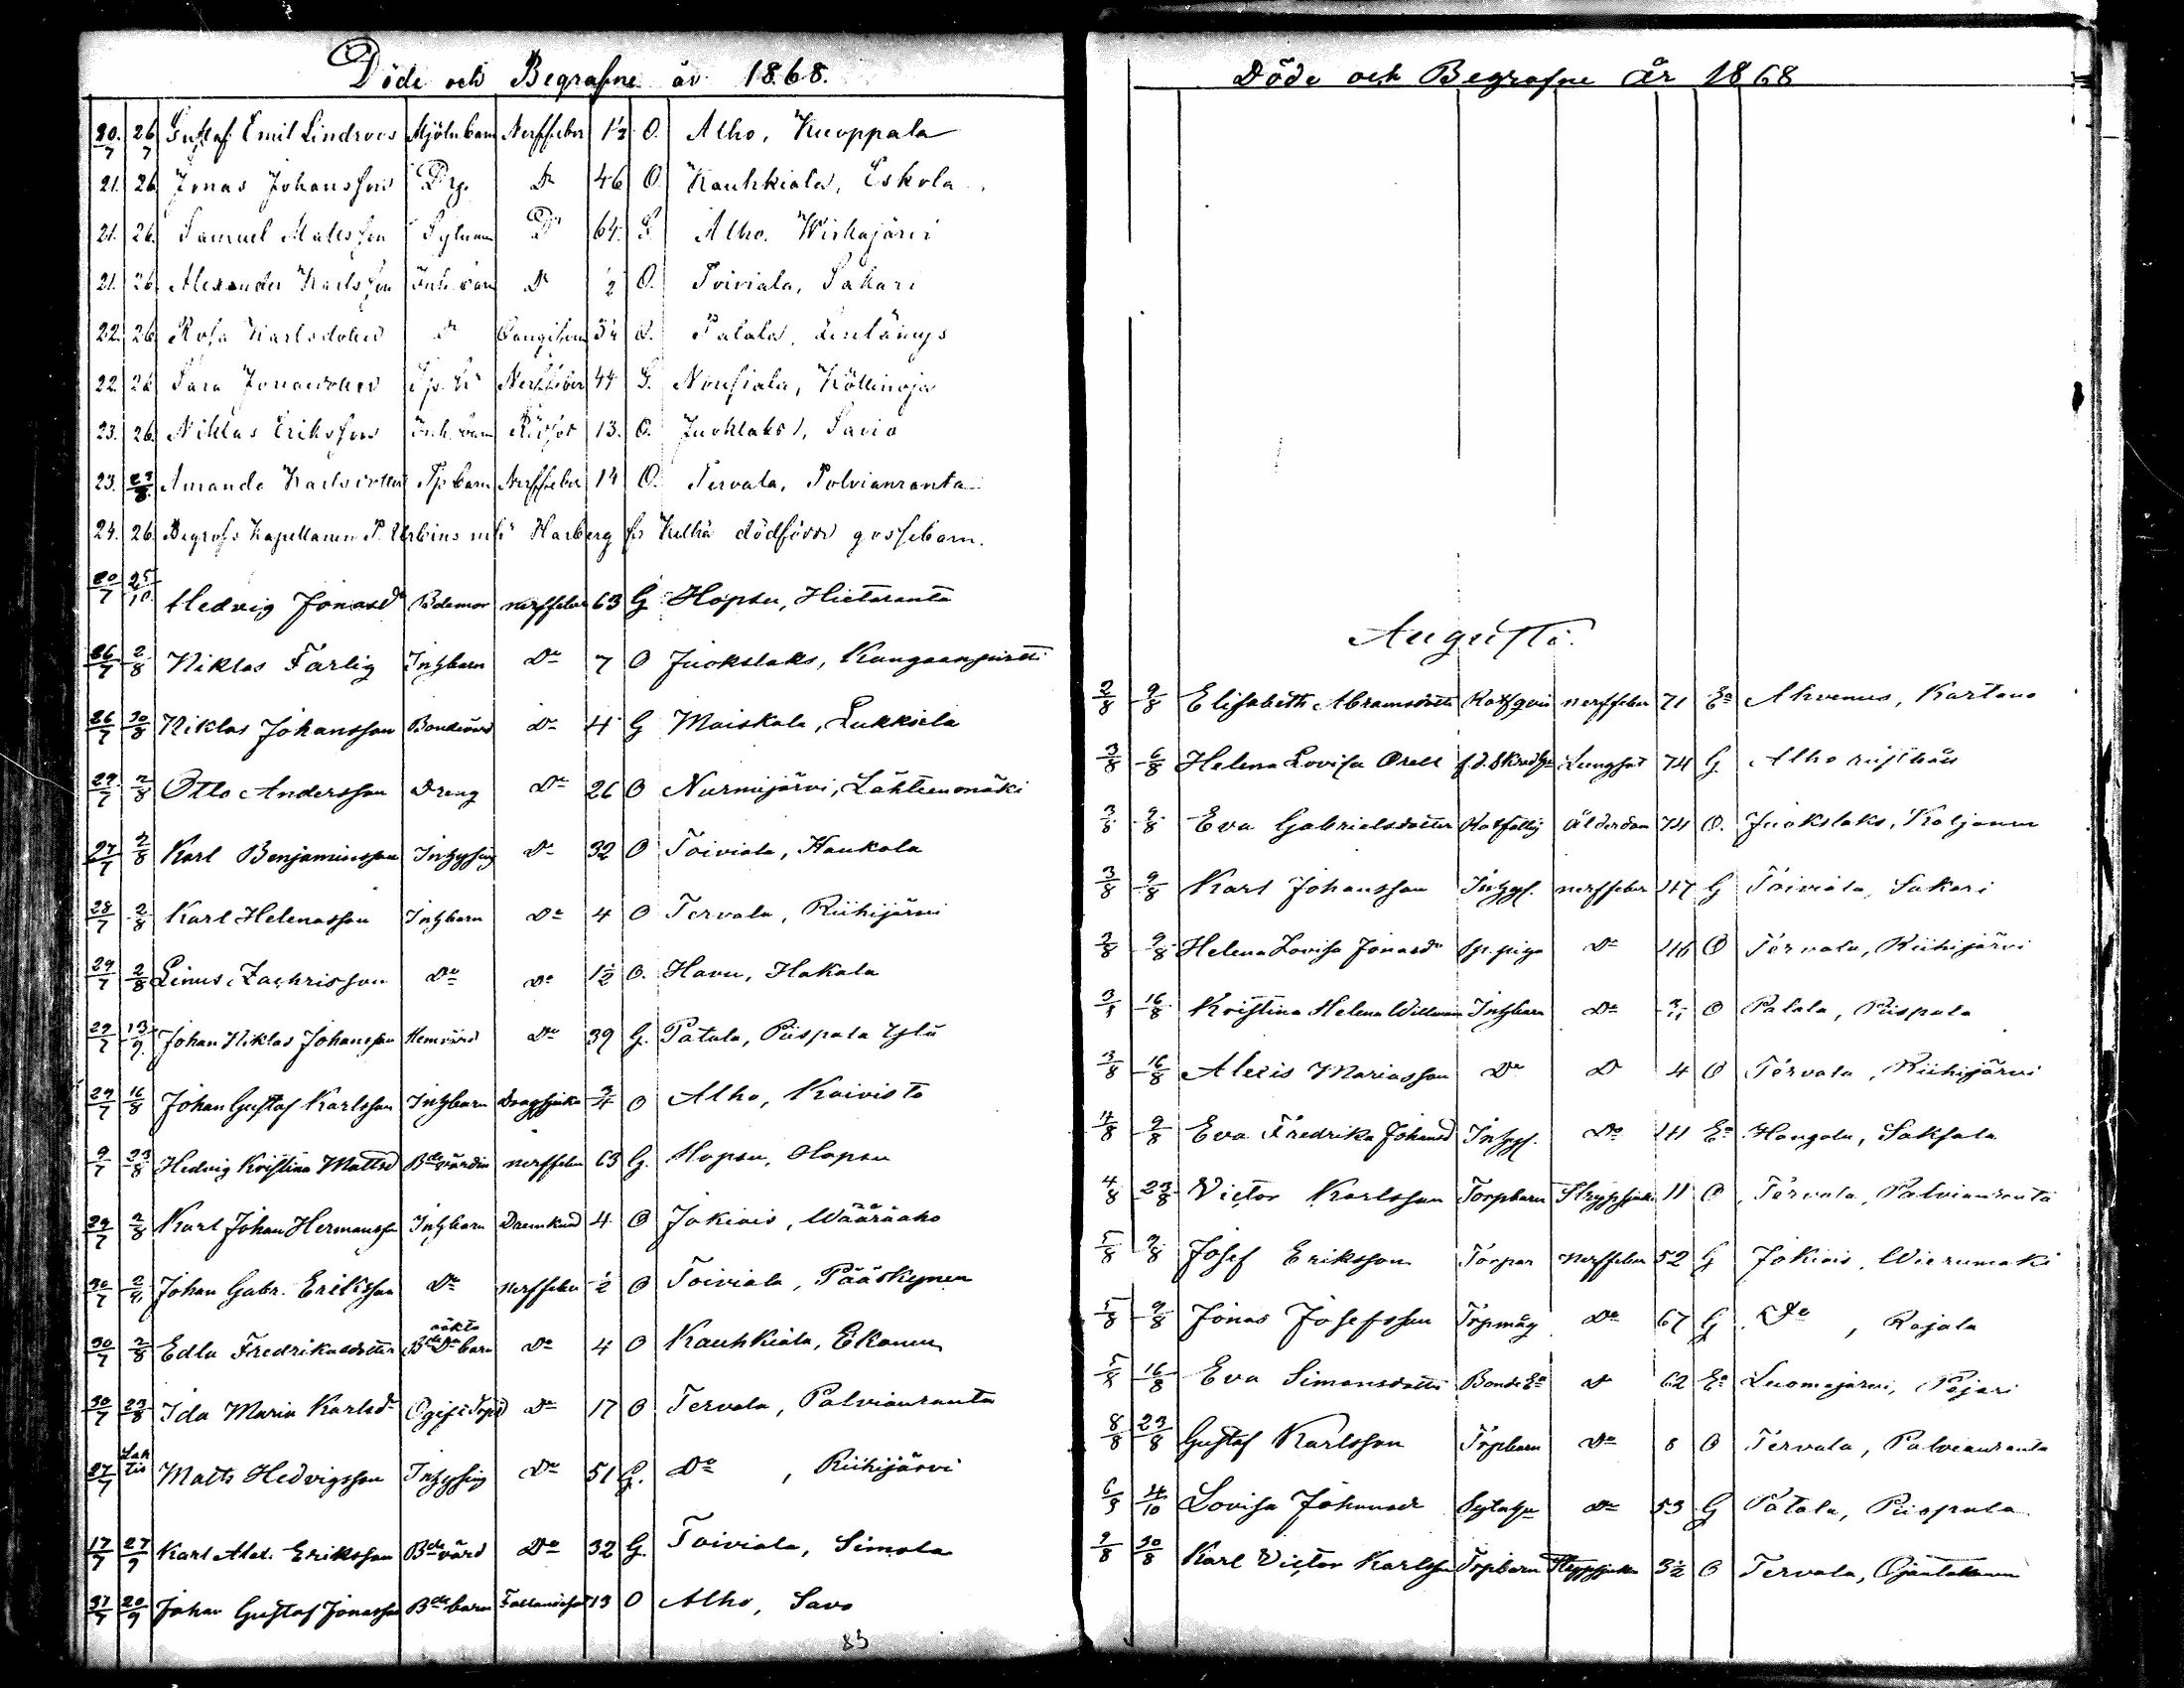 Döde och Begrafne år 1868.
20/7 26/7 Gustaf Emil Lindroos Mjöln.barn Nerffeber 1½ O. Alho, Kuoppala
21. 26 Jonas Johansson Drg. Do 46 O. Kauhkiala, Eskola.
21. 26. Samuel Mattsson Sytnim Do 64. G. Alho. Wiskajärvi
21. 26 Alexander Karlsson Inh. barn Do ½ O. Toiviala, Sakari
22. 26 Rosa Karlsdotter Do 3/4 O. Patala,
22. 26 Sara Jonasdotter Nerffeber 44 G. Nousiala, Köllinoja
23. 26. Niklas Eriksson Inh. barn Rödsot 13. O. Juoklaks, Savio
23. 23/8 Amanda Karlsdotter Tp barn Nerffeber 14 O. Tervala, Polvianranta
24. 26. Begrofs Kapellanen P. Harberg fr Kelhä dödfödde gossebarn.
20/7 25/10 Hedvig Jonasdr Bdemor nerffeber 63 G Hopsu, Hietaranta
26/7 2/8 Niklas Färlig Inhbarn Do 7 O Juokslaks, Kangaanpirtti
26/7 30/8 Niklas Johansson Bondevärd Do 4 G Maiskala, Lukkoila
27/7 2/8 Otto Andersson Dreng Do 26 O Nurmijärvi, Lähteenmäki
27/7 2/8 Karl Benjaminsson Inhysing Do 32 O Toiviala, Haukala
28/7 2/8 Karl Helenasson Inhbarn Do 4 O Tervala, Riihijärvi
29/7 2/8 Linus Zachrisson Do Do 1½ O. Havu, Hakala
29/7 13/9 Johan Niklas Johansson Hemvärd Do 39 G. Patala, Piispala Yli
29/7 16/8 Johan Gustaf Karlsson Inhbarn Dragsjuka 3/4 O Alho, Koivisto
9/7 23/8 Hedvig Kristina Mattsd Bdevärdin nerffeber 63 G. Hopsu, Hopsu
29/7 2/8 Karl Johan Hermansson Inhbarn Drunknad 4 O Jokivis, Wääräaho
30/7 Johan Gabr. Eriksson Do nerffeber ½ O Toiviala, Pääskynen
30/7 2/8 Edla Fredriksdotter Bde oäkta barn Do 4 O Kauhkiala, Ekonen
30/7 23/8 Ida Maria Karlsd Ogift Torpd Do 17 O Tervala, Palvianranta
27/7 Lahtis Matts Hedvigsson Inhysing Do 51 G. Do, Riihijärvi
17/7 27/9 Karl Alex. Eriksson Bdevärd Do 32 G. Toiviala, Simola
31/7 20/9 Johan Gustaf Jonasson Bdebarn Fallandesot 13 O Alho, Savo
83
Döde och Begrafne År 1868
Augusti.
2/8 9/8 Elisabeth Abramsdotter Rothjon nerffeber 71 Ea Ahvenus, Kartano
3/8 6/8 Helena Lovisa Orell Lungsot 74 G. Alho rusthåll
3/8 9/8 Eva Gabrielsdotter Rotfattig Ålderdom 74 O. Juokslaks, Koljonen
3/8 9/8 Karl Johansson Inhys. nerffeber 47 G Toiviala, Sakari
3/8 9/8 Helena Lovisa Jonasdr Sp. piga Do 46 O Tervala, Riihijärvi
3/8 16/8 Kristina Helena Willman Inhbarn Do O Patala, Piispala
3/8 16/8 Alexis Mariasson Do Do 4 O Tervala, Riihijärvi
4/8 9/8 Eva Fredrika Johansd Inhys. Do 41 Ea Hongola, Saksala
4/8 23/8 Victor Karlsson Torpbarn Strypsjuka 11 O Tervala, Palvianranta
5/8 9/8 Josef Eriksson Torpar nerffeber 52 G Jokivis, Wierumaki
5/8 9/8 Jonas Josefsson Torpmåg Do 67 G Do, Rajala
5/8 16/8 Eva Simonsdotter Bonde Ea Do 62 Ea Luomajärvi, Pajari
8/8 23/8 Gustaf Karlsson Torpbarn Do 8 O Tervala, Palvianranta
6/8 4/10 Lovisa Johansd Sytnhu Do 53 G Patala, Piispala
9/8 30/8 Karl Victor Karlsson Torpbarn Strypsjuka 3½ O Tervala, Ojantakanen